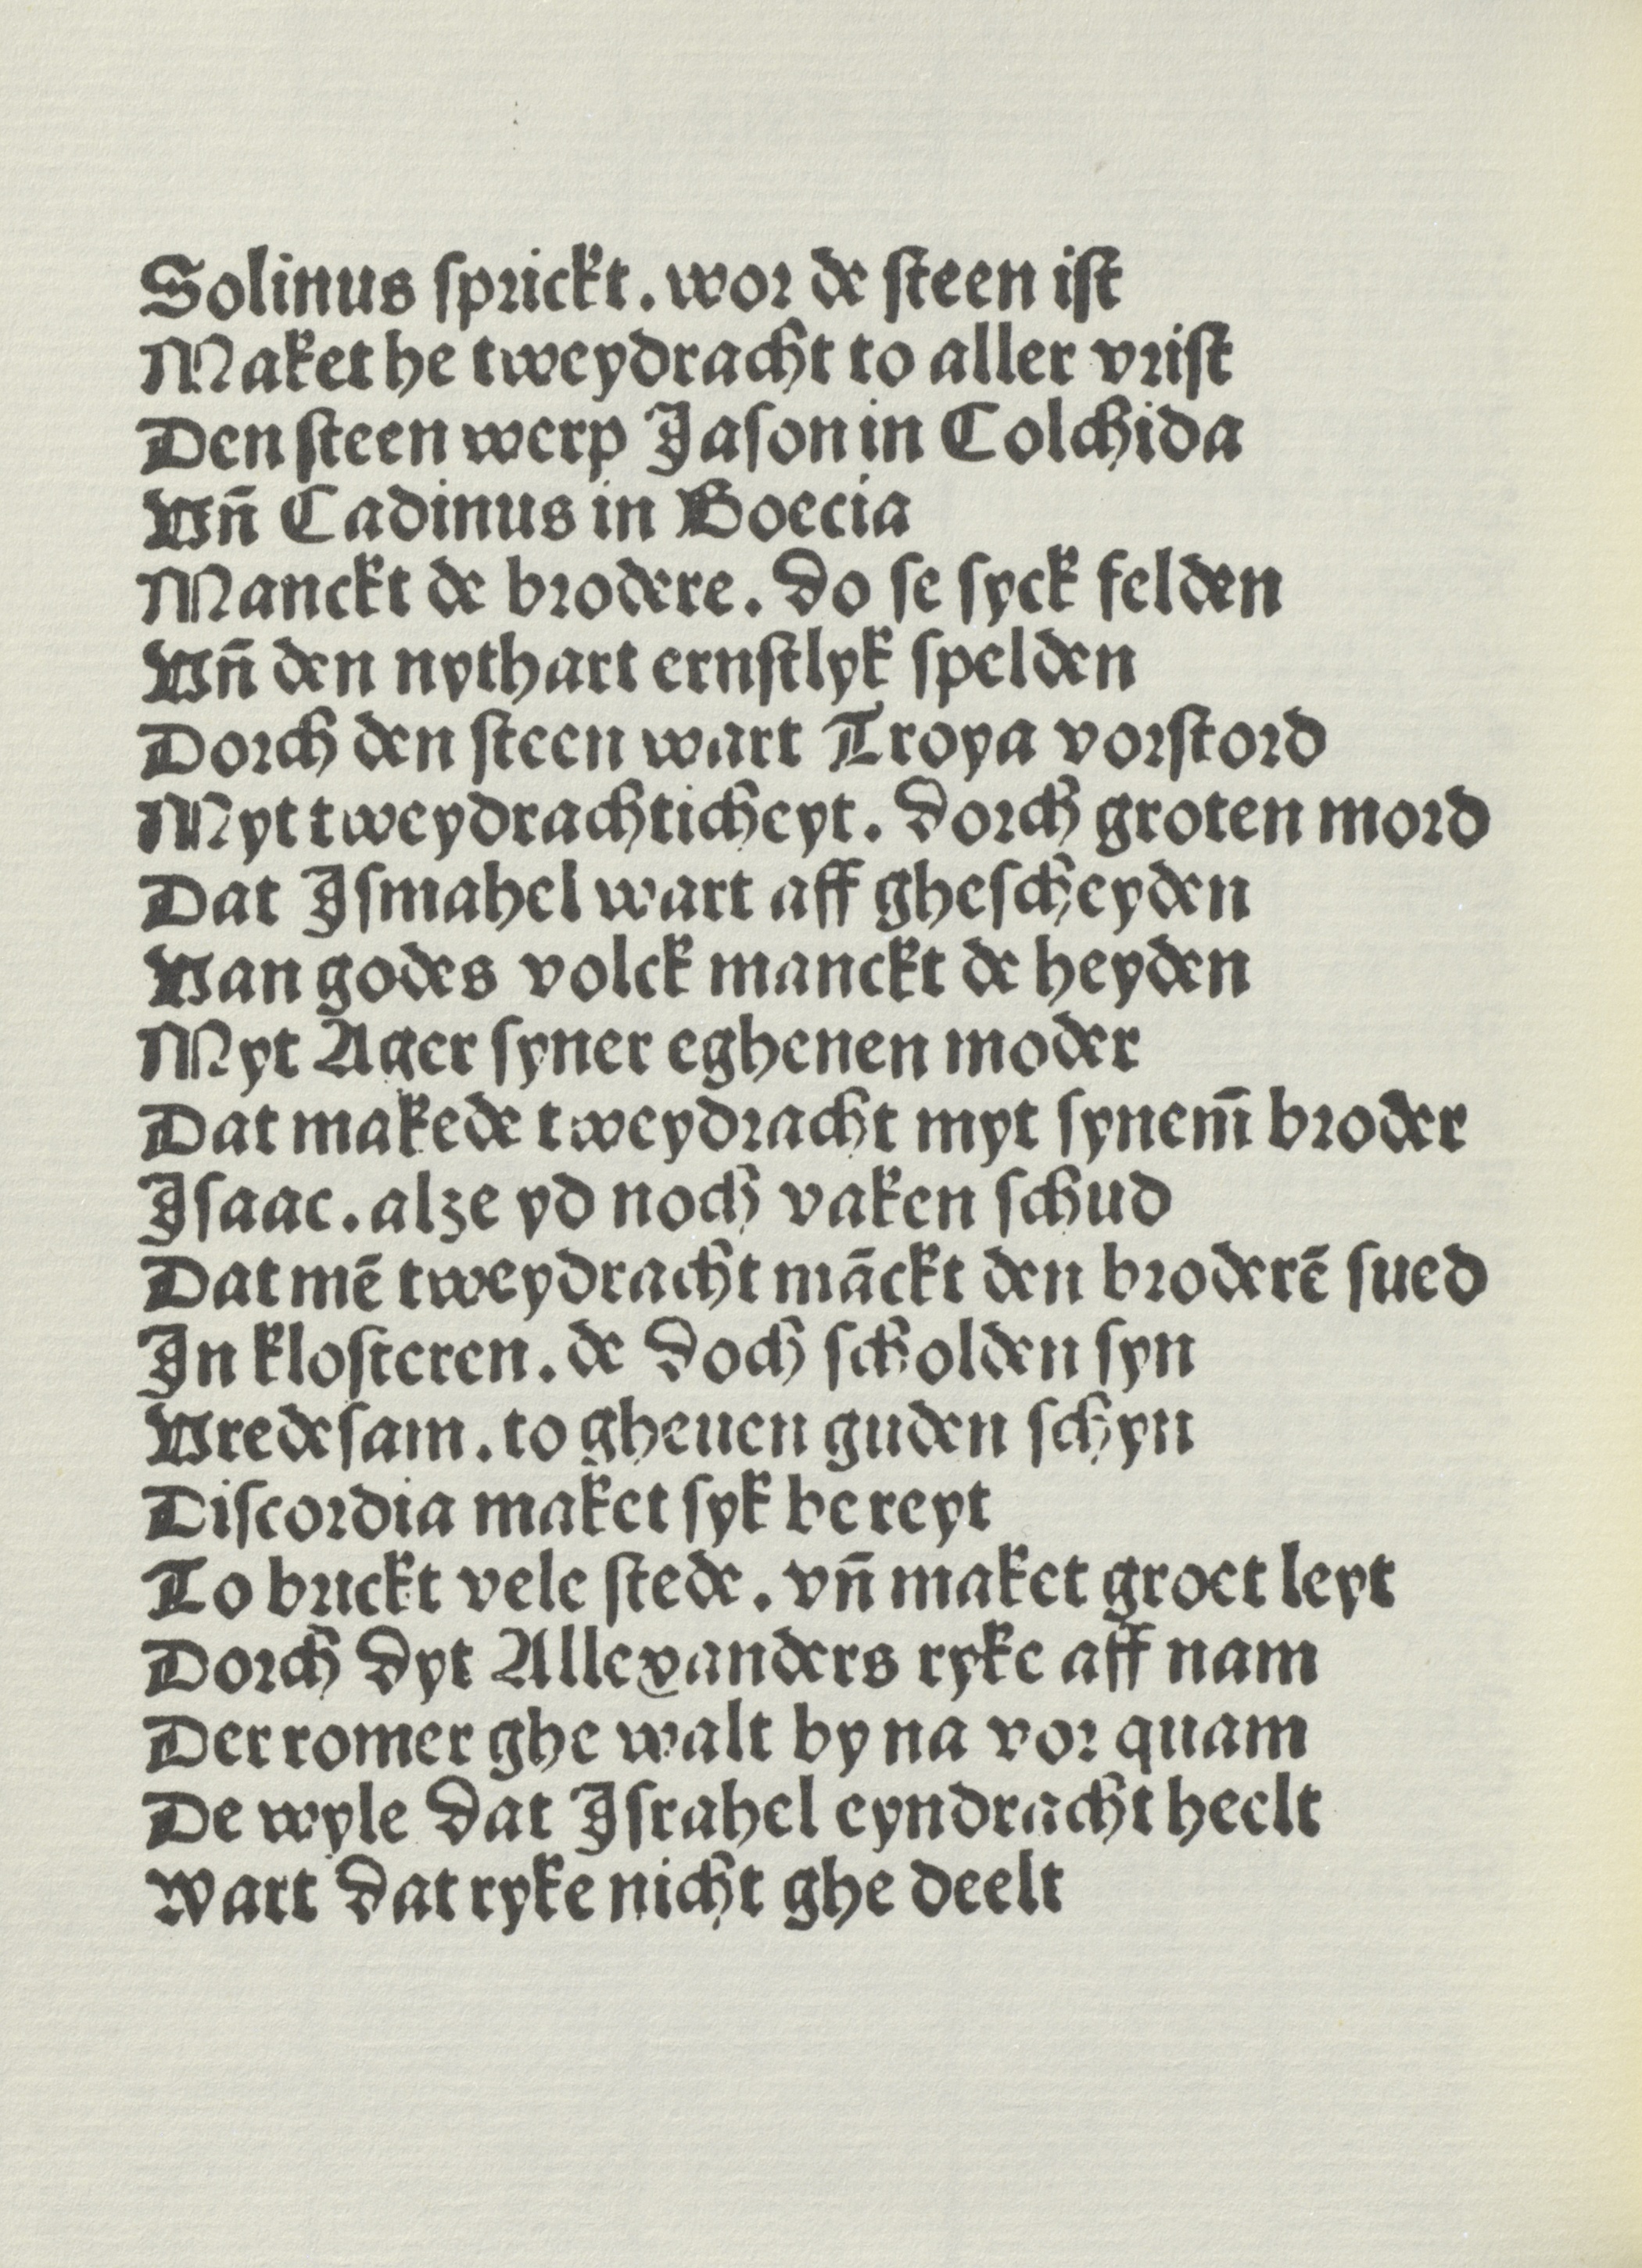 Solinus ſprickt. wor de ſteen iſt
Maket he tweydracht to aller vriſt
Den ſteen werp Jaſon in Colchida
Vn̄ Cadinus in Boecia
Manckt de brodere. Do ſe ſyck felden
Vn̄ den nythart ernſtlyk ſpelden
Dorch den ſteen wart Troya vorſtord
Myt tweydrachticheyt. Dorch groten mord
Dat Jſmahel wart aff gheſcheyden
Van godes volck manckt de heyden
Myt Ager ſyner eghenen moder
Dat makede tweydracht myt ſynem̄ broder
Jſaac. alze yd noch vaken ſchud
Dat mē tweydracht māckt den broderē ſued
Jn kloſteren. de Doch ſcholden ſyn
Vredeſam. to gheuen guden ſchyn
Diſcordia maket ſyk bereyt
To brickt vele ſtede. vn̄ maket groet leyt
Dorch Dyt Allexanders ryke aff nam
Der romer ghe walt by na vor quam
De wyle Dat Jſrahel eyndracht heelt
Wart Dat ryke nicht ghe deelt